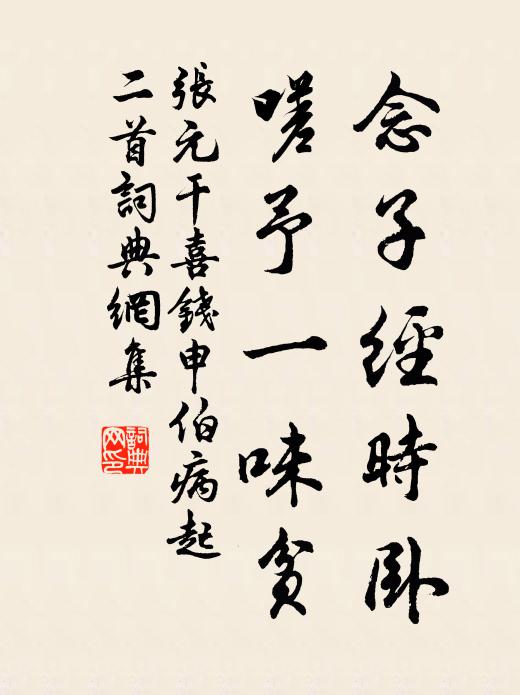 念子經時卧
嗟予一味貧
張元干喜錢申伯病起
二首詞典網集
詞典
网印